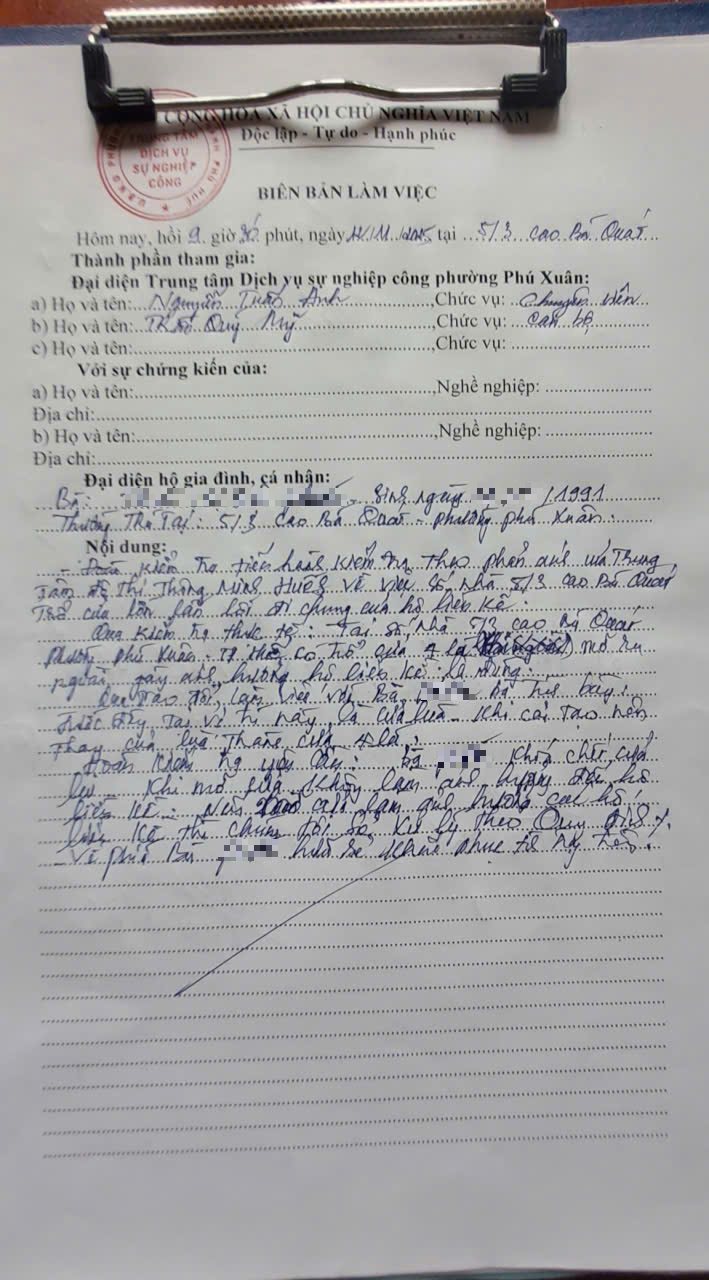 CỘNG HÒA XÃ HỘI CHỦ NGHĨA VIỆT NAM
Độc lập - Tự do - Hạnh phúc
TRUNG TÂM
DỊCH VỤ
SỰ NGHIỆP
CÔNG
BIÊN BẢN LÀM VIỆC
Hôm nay, hồi 9 giờ 30 phút, ngày /11/2025 tại 5/3 Cao Bá Quát
Thành phần tham gia:
Đại diện Trung tâm Dịch vụ sự nghiệp công phường Phú Xuân:
a) Họ và tên: Nguyễn Tuấn Anh, Chức vụ: Chuyên viên
b) Họ và tên: Trần Quý Mỹ, Chức vụ: Cán bộ
c) Họ và tên:, Chức vụ:
Với sự chứng kiến của:
a) Họ và tên:, Nghề nghiệp:
Địa chỉ:
b) Họ và tên:, Nghề nghiệp:
Địa chỉ:
Đại diện hộ gia đình, cá nhân:
Bà: - Sinh ngày /1991
Thường Trú Tại: 5/3 Cao Bá Quát - phường phú Xuân.
Nội dung:
- kiểm tra tiến hành kiểm tra theo phản ánh của Trung
Tâm đô Thị Thông Minh Huế về việc số nhà 5/3 Cao Bá Quát
Trổ cửa lấn lối đi chung của hộ liền kề.
Qua kiểm tra thực tế: Tại số nhà 5/3 cao Bá Quát
phường phú Xuân có trổ cửa 4 lá mở ra
ngoài gây ảnh hưởng hộ liền kề là đúng.
Qua trao đổi, làm việc với Bà trình bày:
Trước đây, tại vị trí này là cửa. Khi cải tạo nên
thay cửa thành cửa 4 lá.
Đoàn kiểm tra yêu cầu: Bà khóa chốt cửa
lại. Khi mở cửa không làm ảnh hưởng đến hộ
liền kề. Nếu làm ảnh hưởng các hộ
liền kề thì chúng tôi sẽ xử lý theo Quy định./.
- Về phía Bà hứa sẽ khắc phục